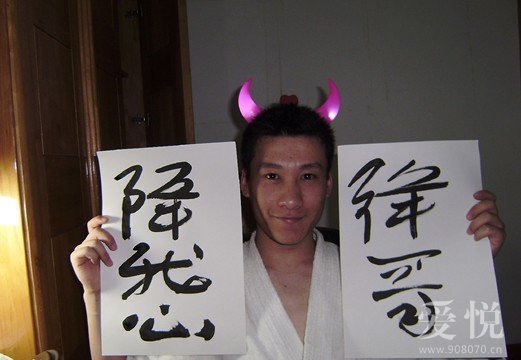 降我心
哥
爱悦
www.908070.cn